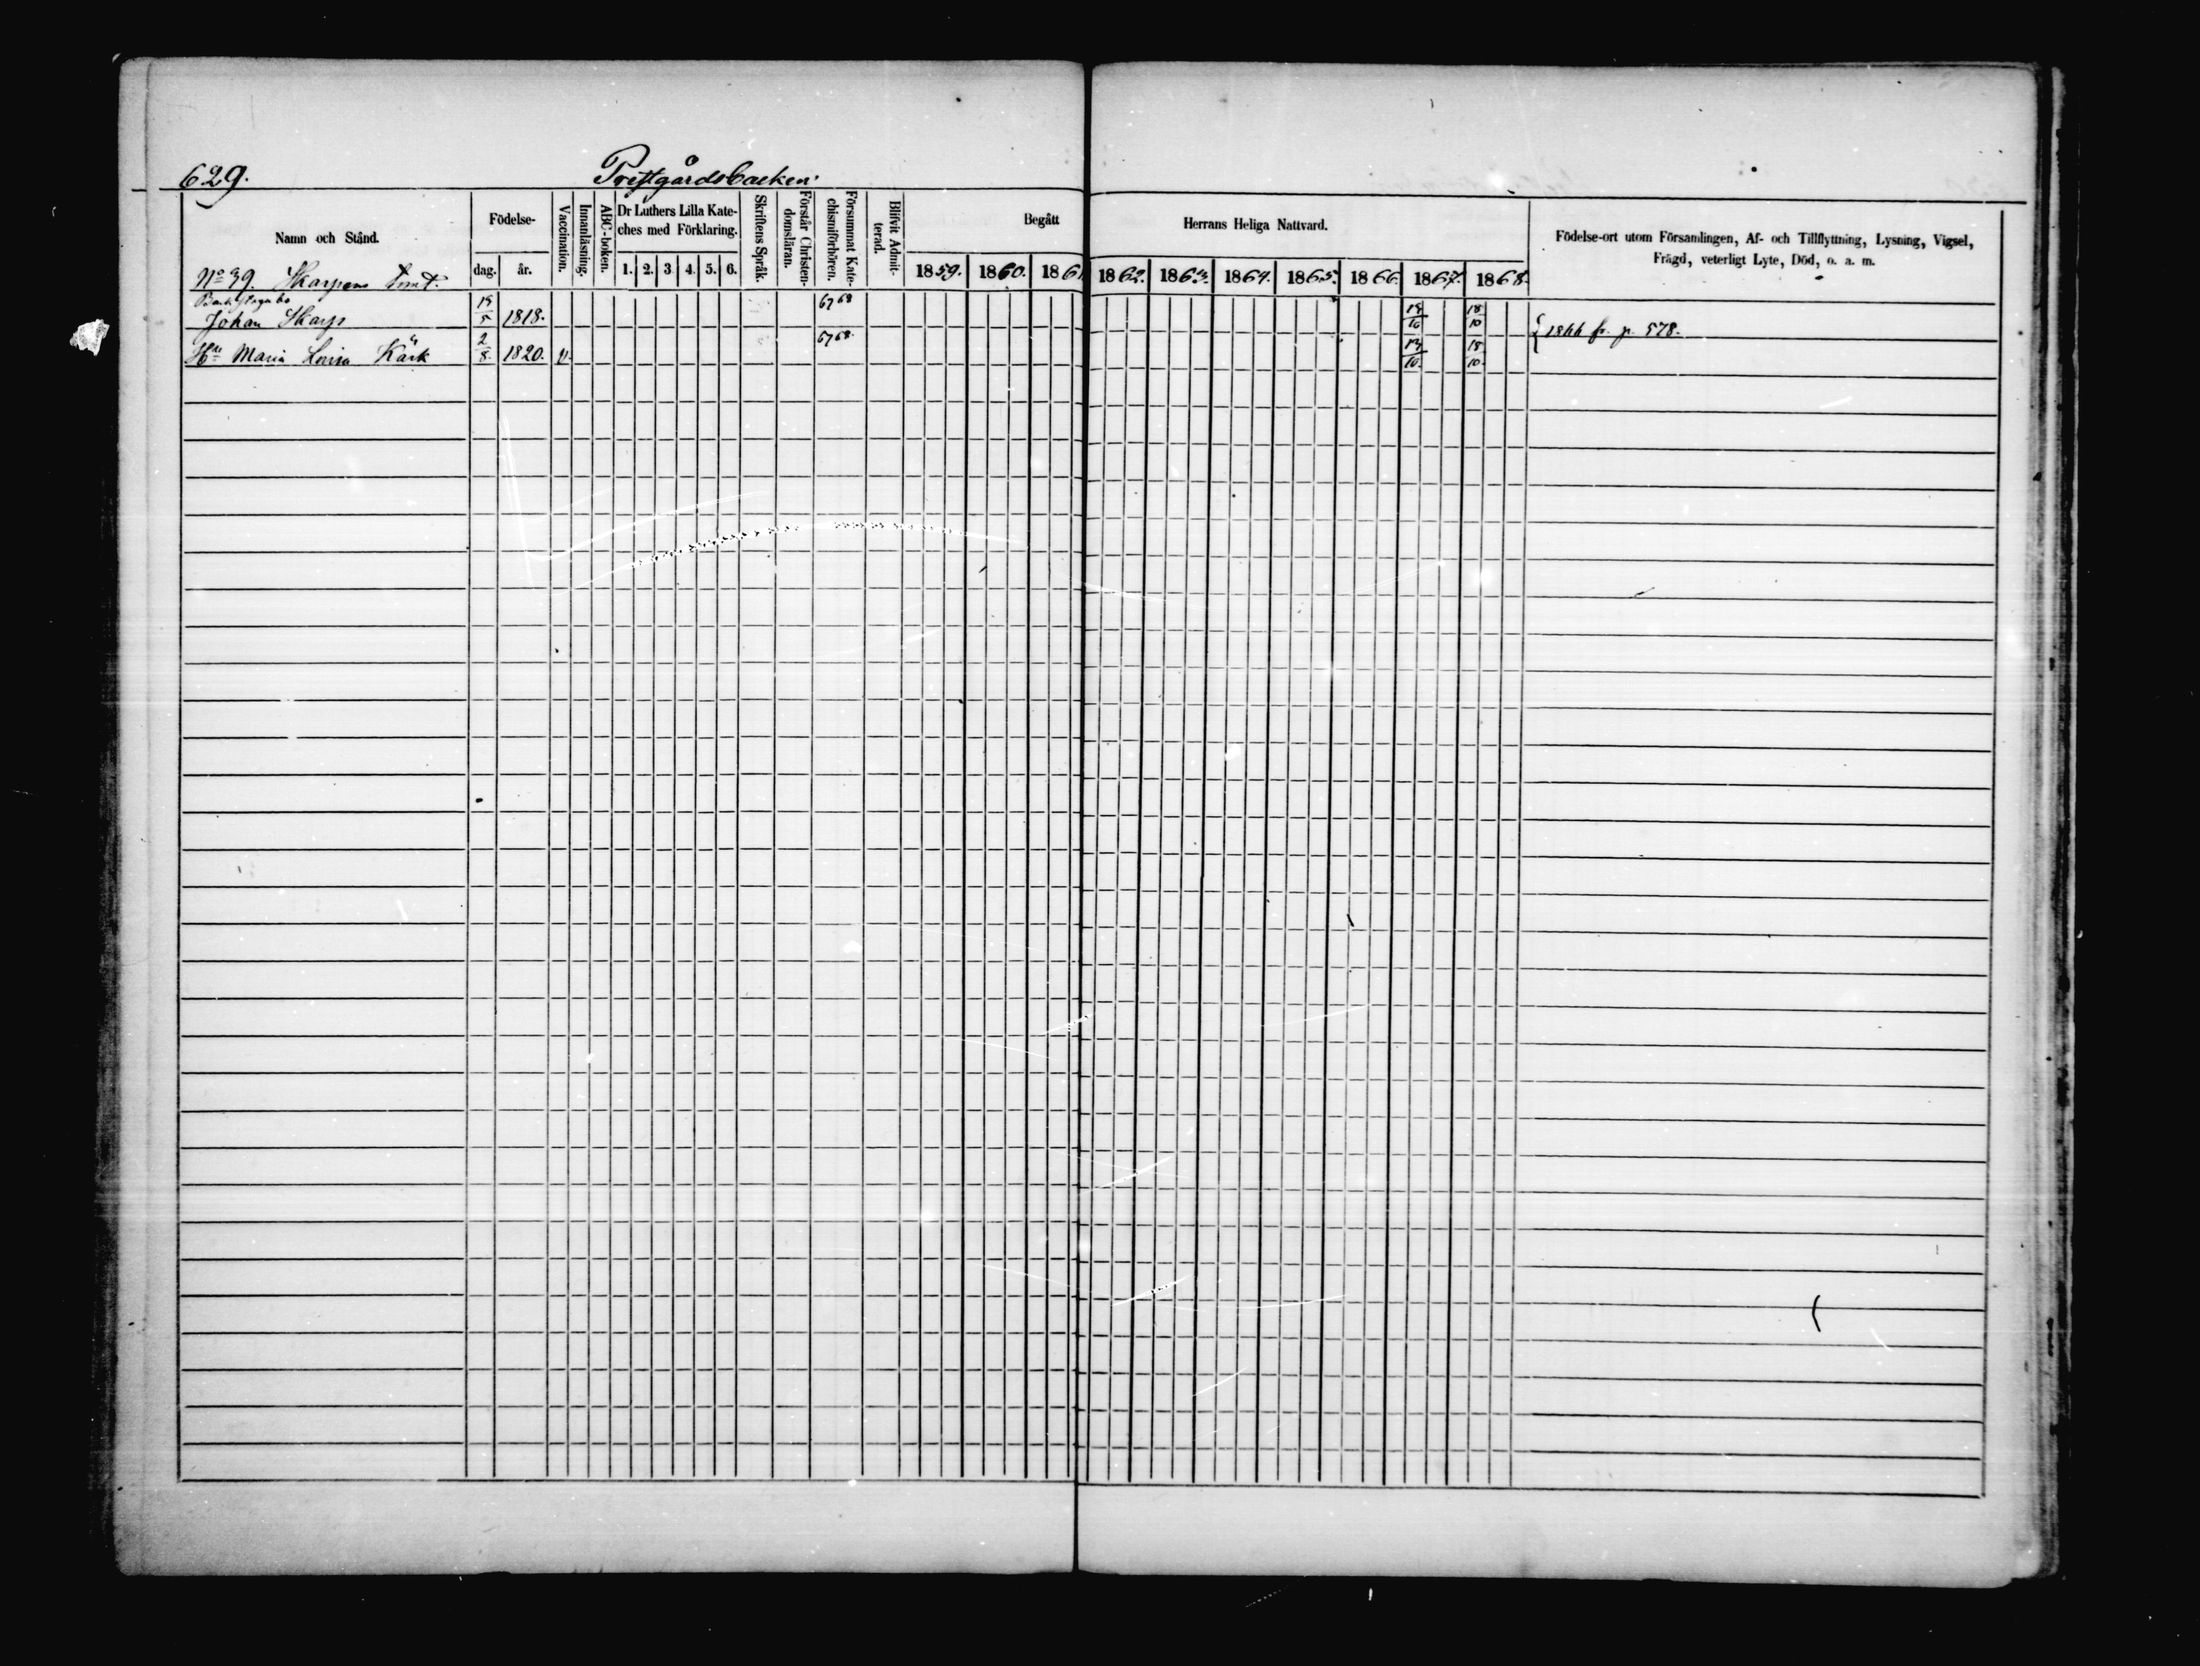 629. Prestgårdsbacken.
Namn och Stånd.
Födelse-
dag. år.
Vaccination.
Innanläsning.
ABC-boken.
Dr Luthers Lilla Kate-
ches med Förklaring.
1. 2. 3. 4. 5. 6.
Skriftens Språk.
Förstår Christen-
domsläran.
Försummat Kate-
chismiförhören.
Blifvit Admit-
terad.
Begått Herrans Heliga Nattvard.
1859. 1860. 1861 1862. 1863. 1864. 1865. 1866. 1867. 1868.
Födelse-ort utom Församlingen, Af- och Tillflyttning, Lysning, Vigsel,
Frägd, veterligt Lyte, Död, o. a. m.
No 39. Skarpens tomt.
Johan Skarp 1818. 67 68 18/10 { 1866 fr. p. 578.
Hu Maria Lovisa Kärk 2/8. 1820. v. 67 68. 18/10.